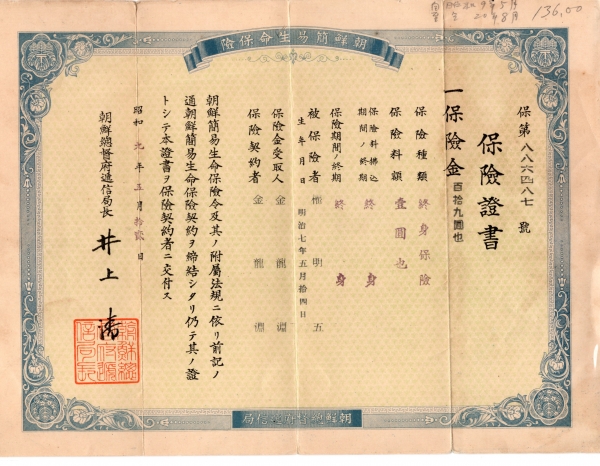 136,00
朝鮮簡易生命保険
保第八八六四八七號
保險證書
一保險金百拾九圓也
保險種類 終身保險
保險料額 壹圓也
保險料拂込期間ノ終期 終身
保險期間ノ終期 終身
被保險者 權明五
生年月日 明治七年五月拾四日
保險金受取人 金龍淵
保險契約者 金龍淵
朝鮮簡易生命保險令及其ノ附屬法規ニ依リ前記ノ
通朝鮮簡易生命保險契約ヲ締結シタリ仍テ其ノ證
トシテ本證書ヲ保險契約者ニ交付ス
昭和九年五月拾貳日
朝鮮總督府遞信局長 井上清
朝鮮總督府遞信局